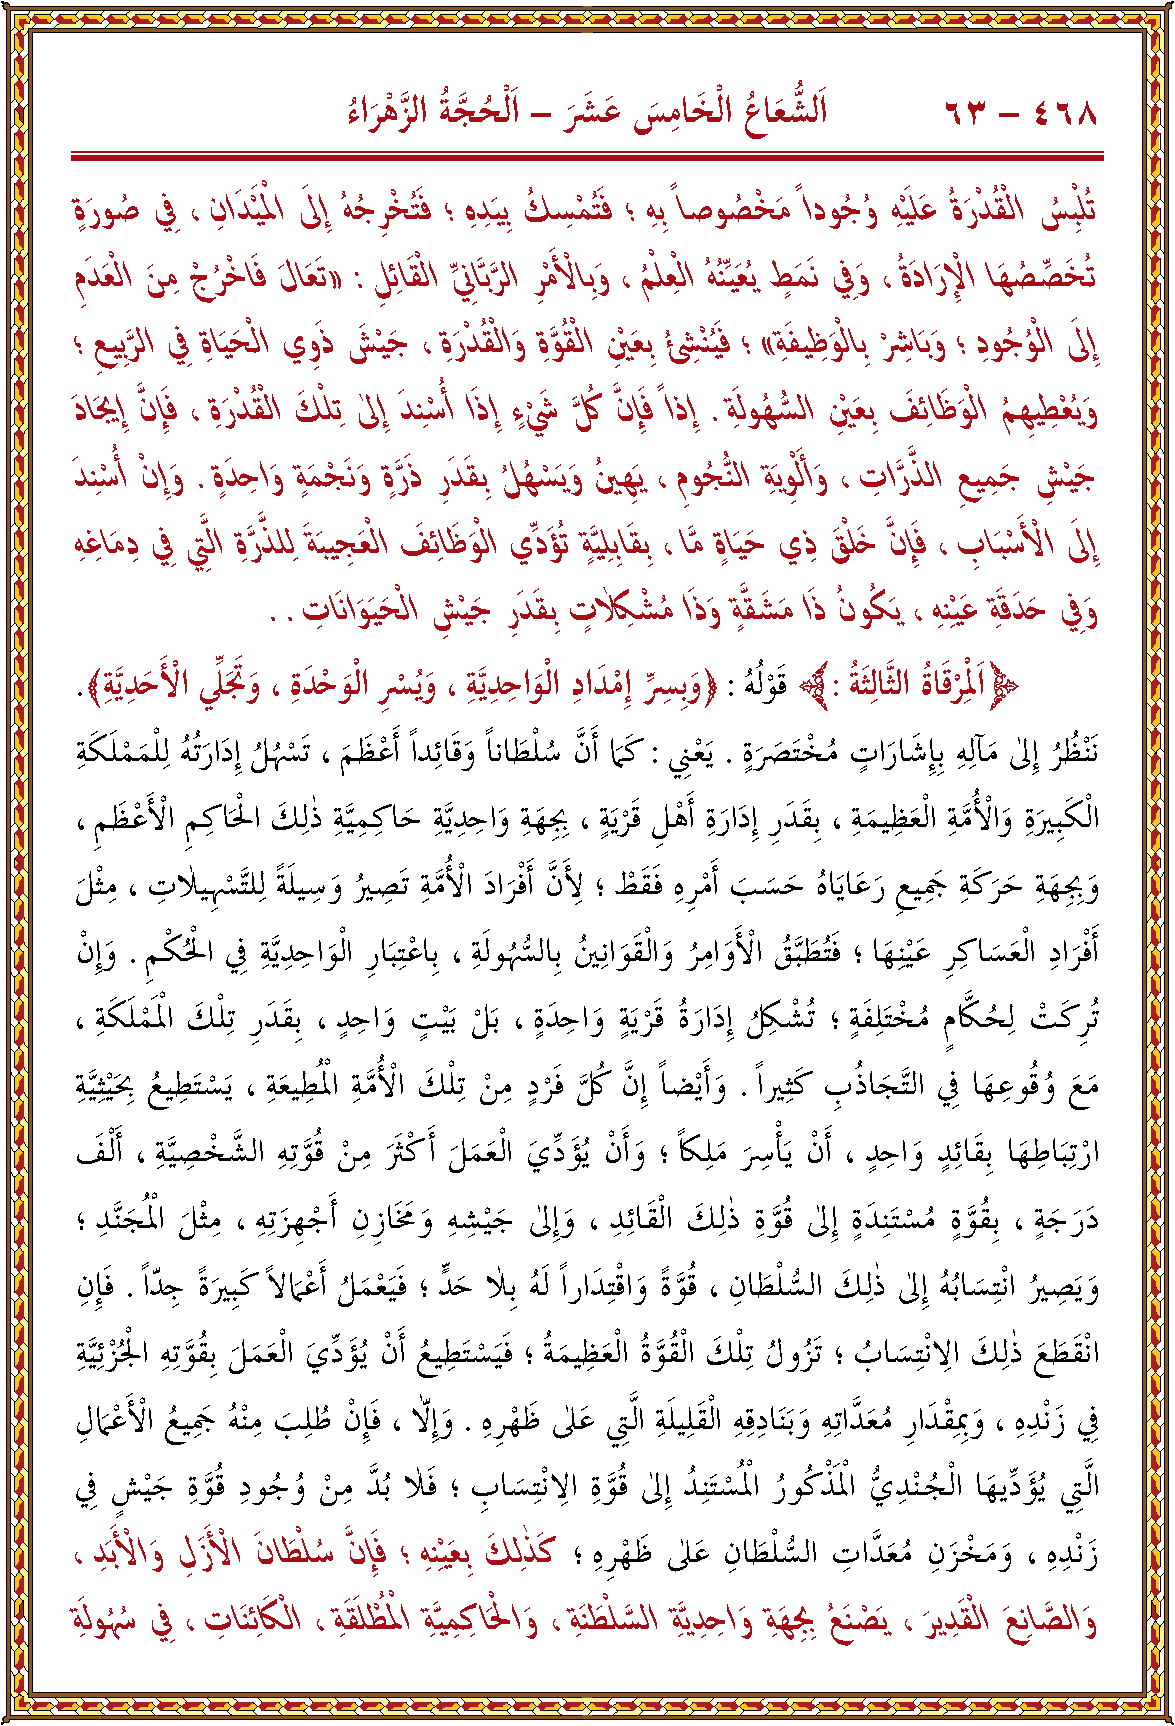 ٤٦٨ – ٦٣ اَلشُّعَاعُ الْخَامِسَ عَشَرَ – اَلْحُجَّةُ الزَّهْرَاءُ
تُلْبِسُ الْقُدْرَةُ عَلَيْهِ وُجُوداً مَخْصُوصاً بِهِ ؛ فَتُمْسِكُ بِيَدِهِ ؛ فَتُخْرِجُهُ إِلَى الْمَيْدَانِ ، فِي صُورَةٍ
تُخَصِّصُهَا الْإِرَادَةُ ، وَفِي نَمَطٍ يُعَيِّنُهُ الْعِلْمُ ، وَبِالْأَمْرِ الرَّبَّانِيِّ الْقَائِلِ : «تَعَالَ فَاخْرُجْ مِنَ الْعَدَمِ
إِلَى الْوُجُودِ ؛ وَبَاشِرْ بِالْوَظِيفَةِ» ؛ فَيُنْشِئُ بِعَيْنِ الْقُوَّةِ وَالْقُدْرَةِ ، جَيْشَ ذَوِي الْحَيَاةِ فِي الرَّبِيعِ ؛
وَيُعْطِيهِمُ الْوَظَائِفَ بِعَيْنِ السُّهُولَةِ . إِذاً فَإِنَّ كُلَّ شَيْءٍ إِذَا أُسْنِدَ إِلٰى تِلْكَ الْقُدْرَةِ ، فَإِنَّ إِيجَادَ
جَيْشِ جَمِيعِ الذَّرَّاتِ ، وَأَلْوِيَةِ النُّجُومِ ، يَهِينُ وَيَسْهُلُ بِقَدَرِ ذَرَّةٍ وَنَجْمَةٍ وَاحِدَةٍ . وَإِنْ أُسْنِدَ
إِلَى الْأَسْبَابِ ، فَإِنَّ خَلْقَ ذِي حَيَاةٍ مَّا ، بِقَابِلِيَّةٍ تُؤَدِّي الْوَظَائِفَ الْعَجِيبَةَ لِلذَّرَّةِ الَّتِي فِي دِمَاغِهِ
وَفِي حَدَقَةِ عَيْنِهِ ، يَكُونُ ذَا مَشَقَّةٍ وَذَا مُشْكِلَاتٍ بِقَدَرِ جَيْشِ الْحَيَوَانَاتِ . .
﴿اَلْمِرْقَاةُ الثَّالِثَةُ :﴾ قَوْلُهُ : ﴿وَبِسِرِّ إِمْدَادِ الْوَاحِدِيَّةِ ، وَيُسْرِ الْوَحْدَةِ ، وَتَجَلِّي الْأَحَدِيَّةِ﴾.
نَنْظُرُ إِلٰى مَآلِهِ بِإِشَارَاتٍ مُخْتَصَرَةٍ . يَعْنِي : كَمَا أَنَّ سُلْطَاناً وَقَائِداً أَعْظَمَ ، تَسْهُلُ إِدَارَتُهُ لِلْمَمْلَكَةِ
الْكَبِيرَةِ وَالْأُمَّةِ الْعَظِيمَةِ ، بِقَدَرِ إِدَارَةِ أَهْلِ قَرْيَةٍ ، بِجِهَةِ وَاحِدِيَّةِ حَاكِمِيَّةِ ذٰلِكَ الْحَاكِمِ الْأَعْظَمِ ،
وَبِجِهَةِ حَرَكَةِ جَمِيعِ رَعَايَاهُ حَسَبَ أَمْرِهِ فَقَطْ ؛ لِأَنَّ أَفْرَادَ الْأُمَّةِ تَصِيرُ وَسِيلَةً لِلتَّسْهِيلَاتِ ، مِثْلَ
أَفْرَادِ الْعَسَاكِرِ عَيْنِهَا ؛ فَتُطَبَّقُ الْأَوَامِرُ وَالْقَوَانِينُ بِالسُّهُولَةِ ، بِاعْتِبَارِ الْوَاحِدِيَّةِ فِي الْحُكْمِ . وَإِنْ
تُرِكَتْ لِحُكَّامٍ مُخْتَلِفَةٍ ؛ تُشْكِلُ إِدَارَةُ قَرْيَةٍ وَاحِدَةٍ ، بَلْ بَيْتٍ وَاحِدٍ ، بِقَدَرِ تِلْكَ الْمَمْلَكَةِ ،
مَعَ وُقُوعِهَا فِي التَّجَاذُبِ كَثِيراً . وَأَيْضاً إِنَّ كُلَّ فَرْدٍ مِنْ تِلْكَ الْأُمَّةِ الْمُطِيعَةِ ، يَسْتَطِيعُ بِحَيْثِيَّةِ
ارْتِبَاطِهَا بِقَائِدٍ وَاحِدٍ ، أَنْ يَأْسِرَ مَلِكاً ؛ وَأَنْ يُؤَدِّيَ الْعَمَلَ أَكْثَرَ مِنْ قُوَّتِهِ الشَّخْصِيَّةِ ، أَلْفَ
دَرَجَةٍ ، بِقُوَّةٍ مُسْتَنِدَةٍ إِلٰى قُوَّةِ ذٰلِكَ الْقَائِدِ ، وَإِلٰى جَيْشِهِ وَمَخَازِنِ أَجْهِزَتِهِ ، مِثْلَ الْمُجَنَّدِ ؛
وَيَصِيرُ انْتِسَابُهُ إِلٰى ذٰلِكَ السُّلْطَانِ ، قُوَّةً وَاقْتِدَاراً لَهُ بِلَا حَدٍّ ؛ فَيَعْمَلُ أَعْمَالاً كَبِيرَةً جِدّاً . فَإِنِ
انْقَطَعَ ذٰلِكَ الْاِنْتِسَابُ ؛ تَزُولُ تِلْكَ الْقُوَّةُ الْعَظِيمَةُ ؛ فَيَسْتَطِيعُ أَنْ يُؤَدِّيَ الْعَمَلَ بِقُوَّتِهِ الْجُزْئِيَّةِ
فِي زَنْدِهِ ، وَبِمِقْدَارِ مُعَدَّاتِهِ وَبَنَادِقِهِ الْقَلِيلَةِ الَّتِي عَلٰى ظَهْرِهِ . وَإِلَّا ، فَإِنْ طَلِبَ مِنْهُ جَمِيعُ الْأَعْمَالِ
الَّتِي يُؤَدِّيهَا الْجُنْدِيُّ الْمَذْكُورُ الْمُسْتَنِدُ إِلٰى قُوَّةِ الْاِنْتِسَابِ ؛ فَلَا بُدَّ مِنْ وُجُودِ قُوَّةِ جَيْشٍ فِي
زَنْدِهِ ، وَمَخْزَنِ مُعَدَّاتِ السُّلْطَانِ عَلٰى ظَهْرِهِ ؛ كَذٰلِكَ بِعَيْنِهِ ؛ فَإِنَّ سُلْطَانَ الْأَزَلِ وَالْأَبَدِ ،
وَالصَّانِعَ الْقَدِيرَ ، يَصْنَعُ بِجِهَةِ وَاحِدِيَّةِ السَّلْطَنَةِ ، وَالْحَاكِمِيَّةِ الْمُطْلَقَةِ ، الْكَائِنَاتِ ، فِي سُهُولَةِ